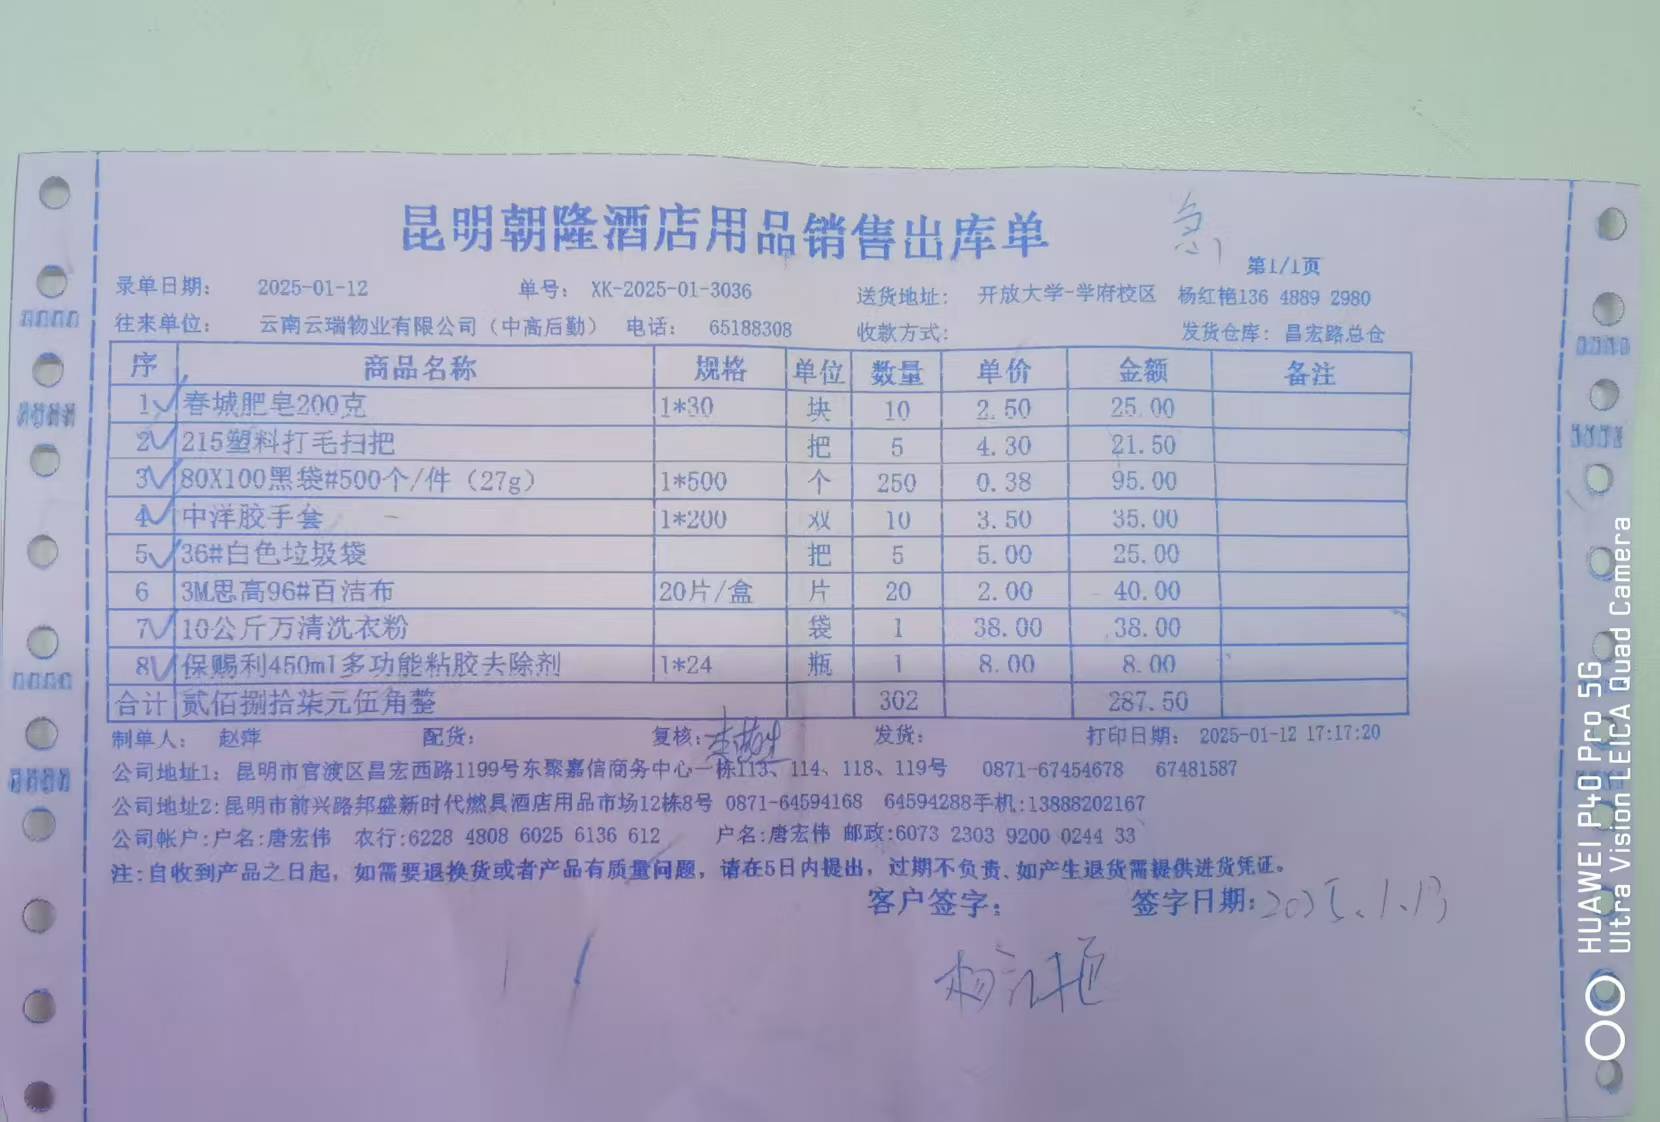 昆明朝隆酒店用品销售出库单
急
第1/1页
录单日期: 2025-01-12 单号: XK-2025-01-3036 送货地址: 开放大学-学府校区 杨红艳136 4889 2980
往来单位: 云南云瑞物业有限公司（中高后勤） 电话: 65188308 收款方式: 发货仓库: 昌宏路总仓
序 商品名称 规格 单位 数量 单价 金额 备注
1 春城肥皂200克 1*30 块 10 2.50 25.00
2 215塑料打毛扫把 把 5 4.30 21.50
3 80X100黑袋#500个/件（27g） 1*500 个 250 0.38 95.00
4 中洋胶手套 1*200 双 10 3.50 35.00
5 36#白色垃圾袋 把 5 5.00 25.00
6 3M思高96#百洁布 20片/盒 片 20 2.00 40.00
7 10公斤万清洗衣粉 袋 1 38.00 38.00
8 保赐利450ml多功能粘胶去除剂 1*24 瓶 1 8.00 8.00
合计 贰佰捌拾柒元伍角整 302 287.50
制单人: 赵萍 配货: 复核: 发货: 打印日期: 2025-01-12 17:17:20
公司地址1: 昆明市官渡区昌宏西路1199号东聚嘉信商务中心一栋113、114、118、119号 0871-67454678 67481587
公司地址2:昆明市前兴路邦盛新时代燃具酒店用品市场12栋8号 0871-64594168 64594288手机:13888202167
公司帐户:户名:唐宏伟 农行:6228 4808 6025 6136 612 户名:唐宏伟 邮政:6073 2303 9200 0244 33
注:自收到产品之日起，如需要退换货或者产品有质量问题，请在5日内提出，过期不负责、如产生退货需提供进货凭证。
客户签字: 签字日期:2025.1.13
杨红艳
HUAWEI P40 Pro 5G
Ultra Vision LEICA Quad Camera